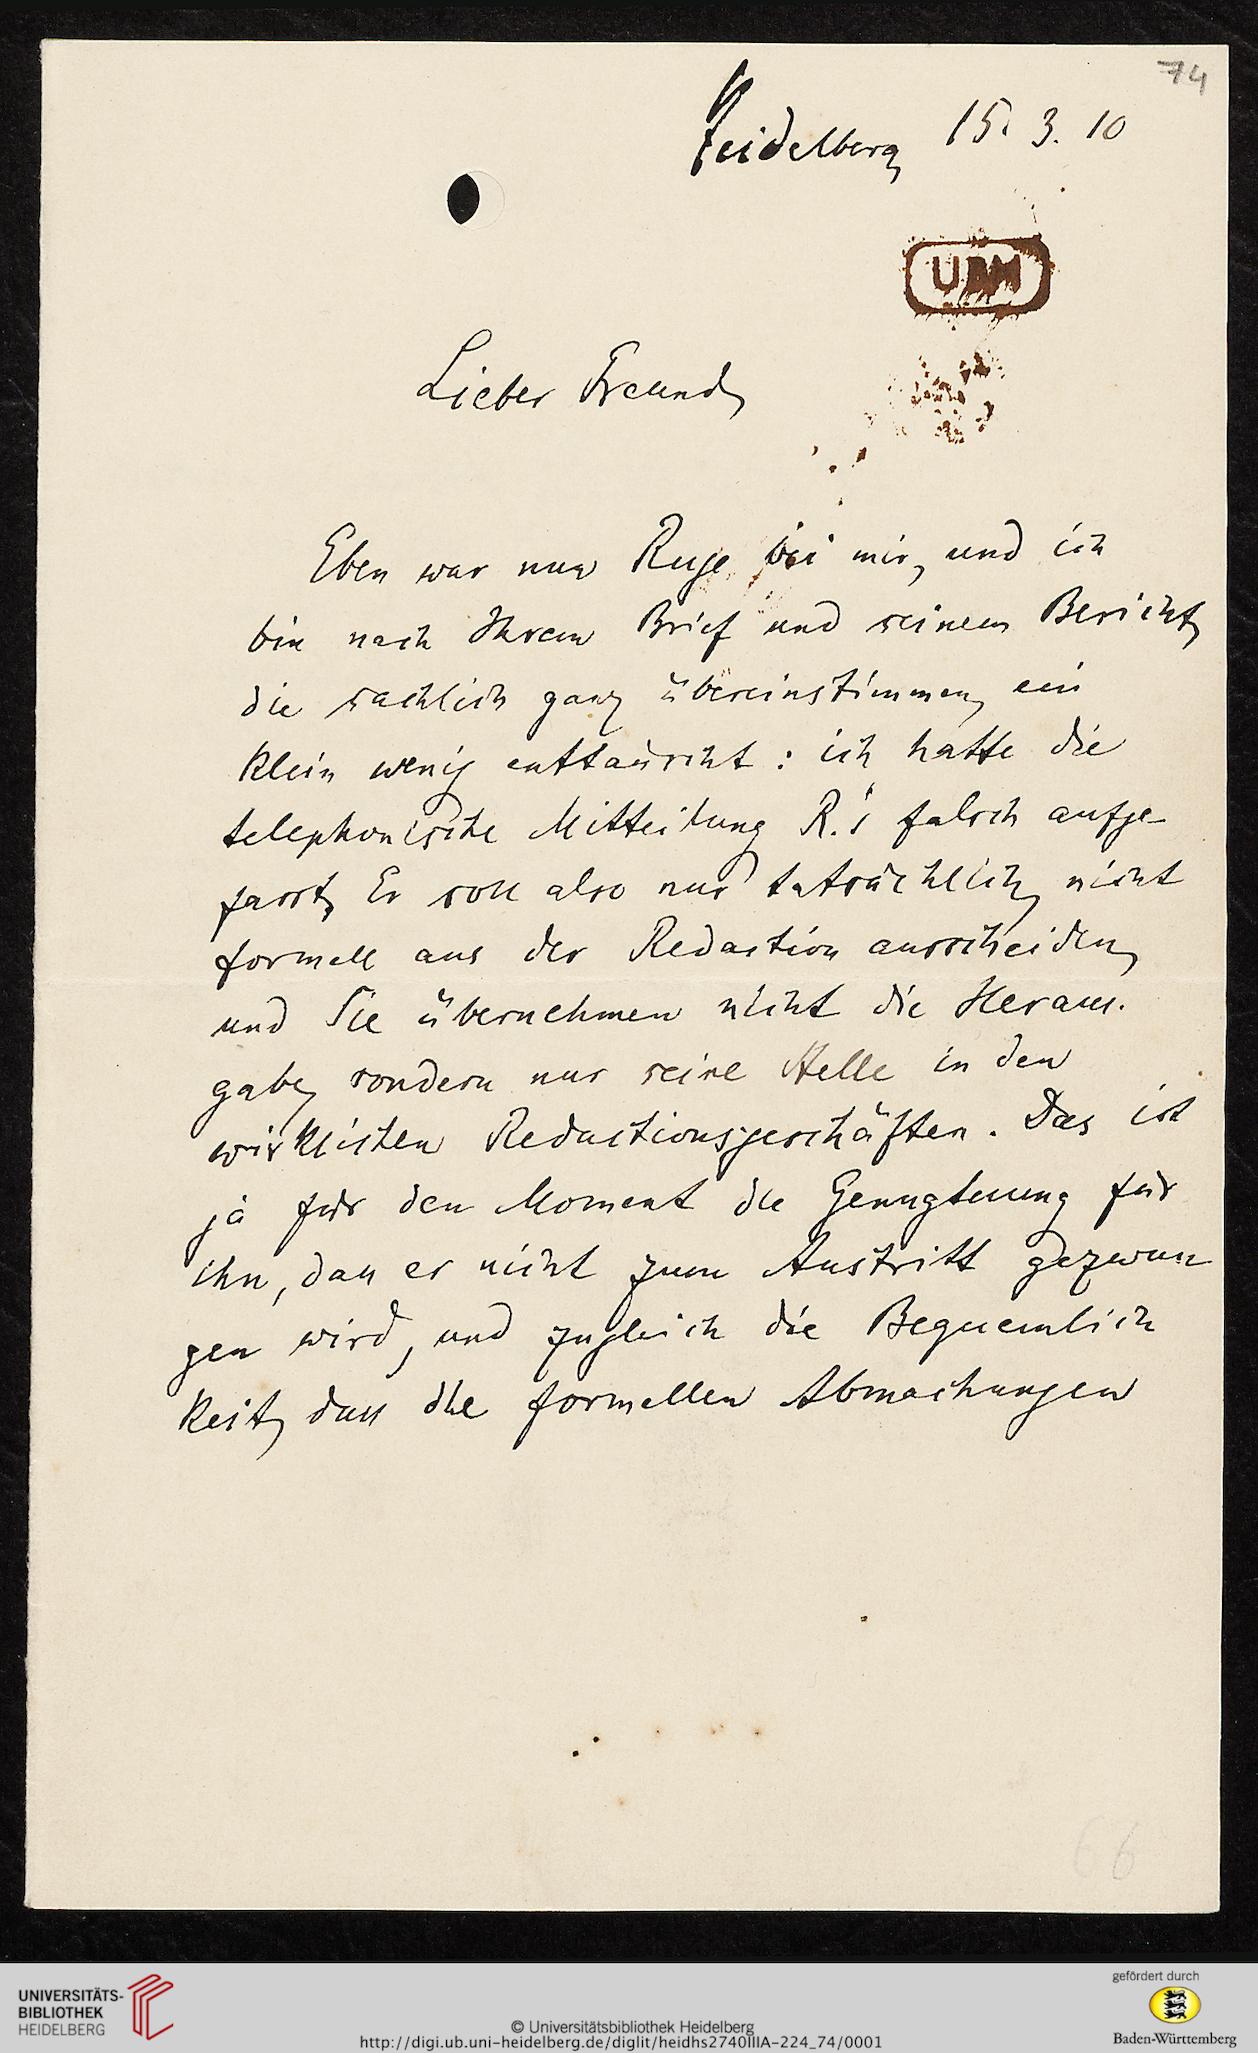 74
Heidelberg 15. 3. 10
UBH
Lieber Freund,
Eben war nun Ruge bei mir, und ich
bin nach Ihrem Brief und seinem Bericht,
die sachlich ganz übereinstimmen, ein
klein wenig enttäuscht: ich hatte die
telephonische Mitteilung R.'s falsch aufge-
fasst, Er soll also nur tatsächlich, nicht
formell aus der Redaction ausscheiden,
und Sie übernehmen nicht die Heraus-
gabe, sondern nur seine Stelle in den
wirklichen Redactionsgeschäften. Das ist
ja für den Moment die Genugtuung für
ihn, dass er nicht zum Austritt gezwun
gen wird, und zugleich die Bequemlich
keit, dass die formellen Abmachungen
66
UNIVERSITÄTS-
BIBLIOTHEK
HEIDELBERG
© Universitätsbibliothek Heidelberg
http://digi.ub.uni-heidelberg.de/diglit/heidhs2740IIIA-224_74/0001
gefördert durch
Baden-Württemberg